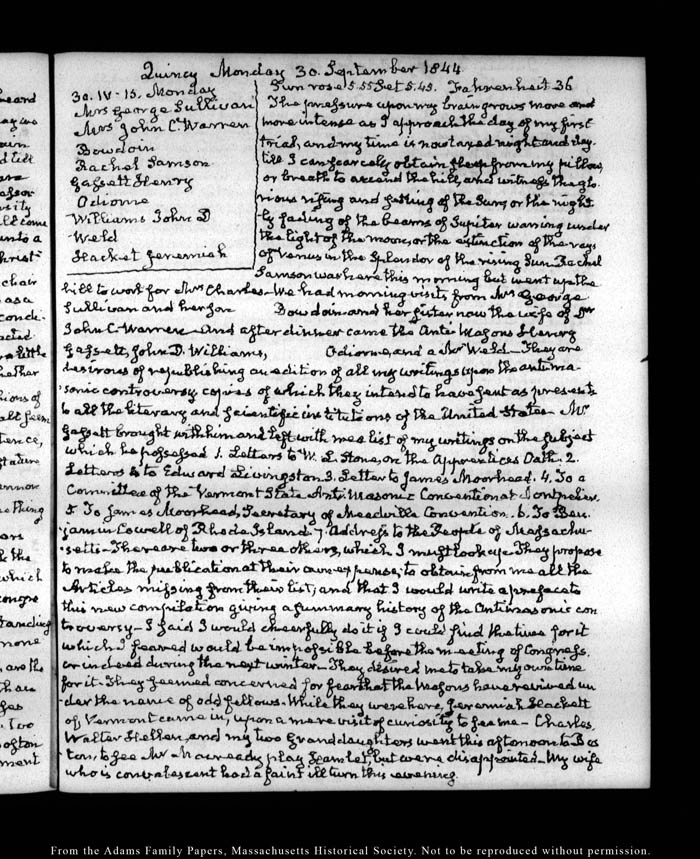 Quincy Monday 30. September 1844
30. IV-15. Monday
Mrs George Sullivan
Mrs John C. Warren
Bowdoin
Rachel Samson
Gassett Henry
Odiorne
Williams John D
Weld
Hacket Jeremiah
Sun rose 5.55 Set 5.45. Fahrenheit 36
The pressure upon my brain grows more and
more intense as I approach the day of my first
trial, and my time is now taxed night and day
till I can scarcely obtain sleep from my pillow,
or breath to ascend the hill, and witness the glo-
rious rising and setting of the Sun, or the night-
ly fading of the beams of Jupiter waning under
the light of the moon, or the extinction of the rays
of Venus in the Splendor of the rising Sun. Rachel
Samson was here this morning but went up the
hill to work for Mrs Charles. We had morning visits from Mrs George
Sullivan and her son Bowdoin and her sister now the wife of Dr
John C. Warren. And after dinner came the Anti Masons Henry
Gassett, John D. Williams, Odiorne, and a Mr Weld. They are
desirous of republishing an edition of all my writings upon the antima-
sonic controversy copies of which they intend to have sent as presents
to all the literary and scientific institutions of the United States. Mr
Gassett brought with him and left with me a list of my writings on the subject
which he possessed 1. Letters to W. L. Stone, on the Apprentices Oath. 2.
Letters to Edward Livingston 3. Letter to James Moorhead. 4. To a
Committee of the Vermont State Anti Masonic Convention at Montpelier.
5 To James Moorhead, Secretary of Meadville Convention. 6. To Ben-
jamin Cowell of Rhode Island 7. Address to the People of Massachu-
setts. There are two or three others, which I must look up. They propose
to make the publication at their own expense; to obtain from me all the
Articles missing from their list, and that I would write a preface to
this new compilation giving a summary history of the Antimasonic con
troversy. I said I would cheerfully do it if I could find the time for it
which I feared would be impossible before the meeting of Congress,
or indeed during the next winter. They desired me to take my own time
for it. They seemed concerned for fear that the Masons have revived un
der the name of odd fellows. While they were here, Jeremiah Hackett
of Vermont came in, upon a mere visit of curiosity to see me. Charles,
Walter Hellen, and my two Granddaughters went this afternoon to Bos
ton, to see Mr Macready play Hamlet, but were disappointed. My wife
who is convalescent had a faint ill turn this evening.
From the Adams Family Papers, Massachusetts Historical Society. Not to be reproduced without permission.